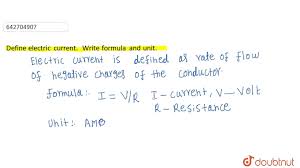 642704907
Define electric current. Write formula and unit.
Electric current is defined as rate of flow
of negative charges of the conductor
Formula:- I = V/R I - current, V - Volt
R - Resistance
Unit:- AMP
doubtnut